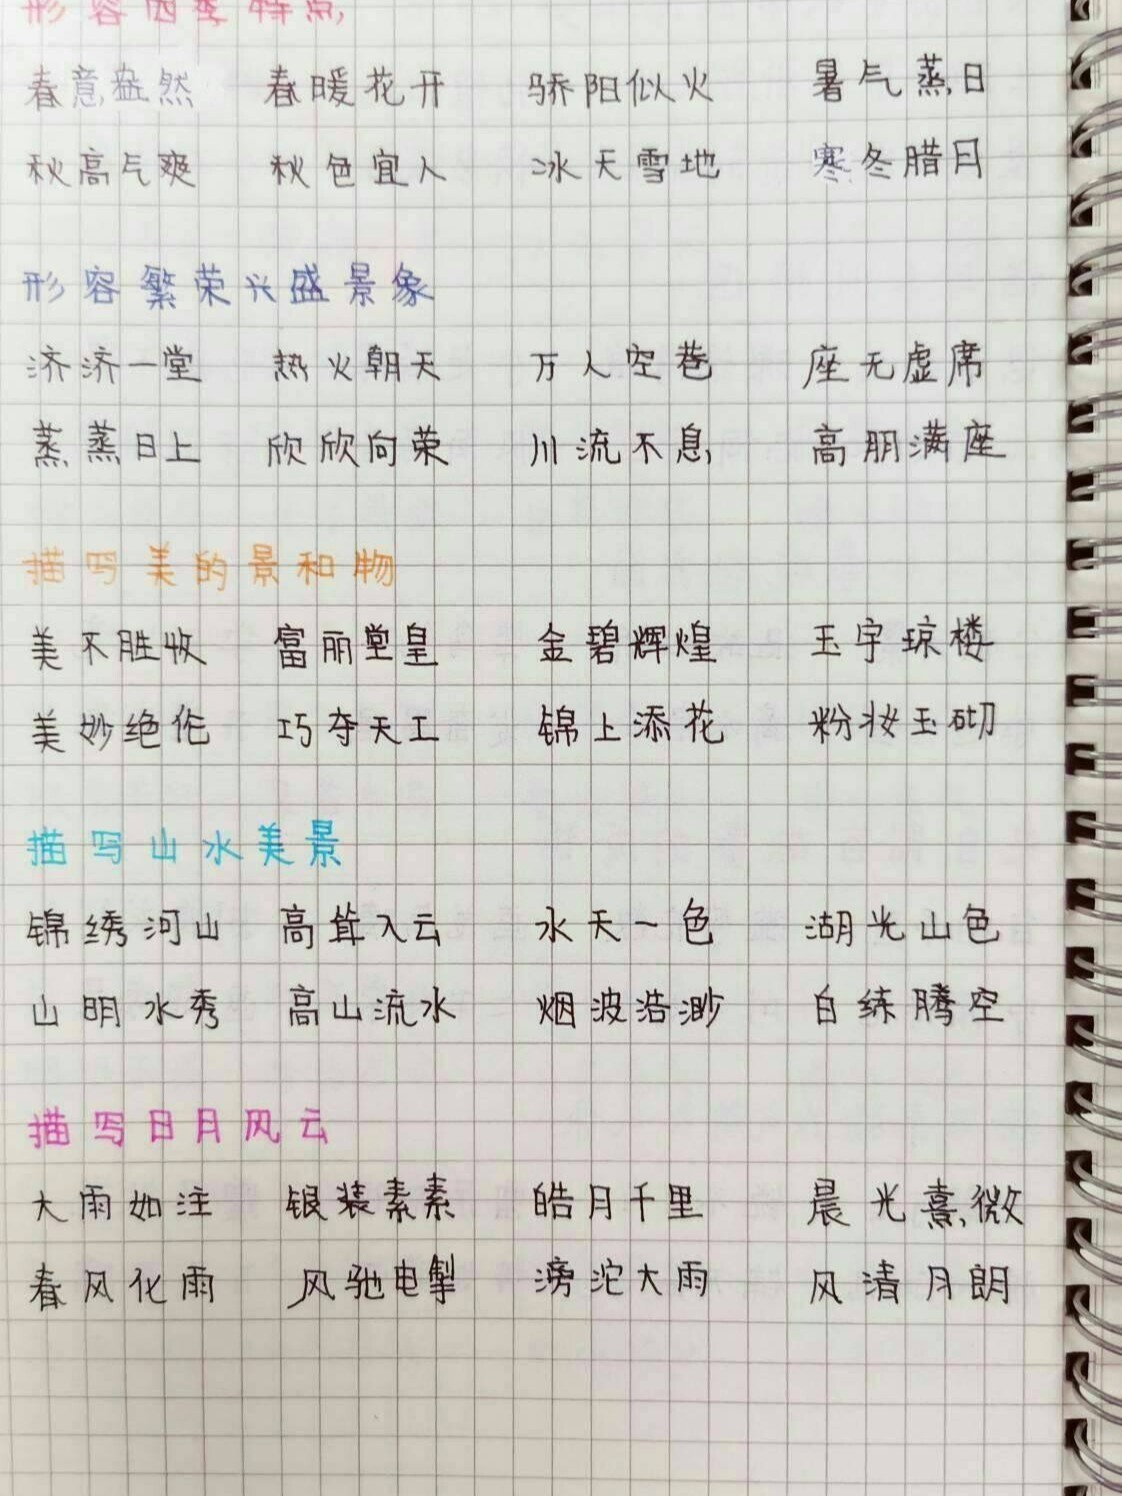 形容四季特点
春意盎然 春暖花开 骄阳似火 暑气蒸日
秋高气爽 秋色宜人 冰天雪地 寒冬腊月
形容繁荣兴盛景象
济济一堂 热火朝天 万人空巷 座无虚席
蒸蒸日上 欣欣向荣 川流不息 高朋满座
描写美的景和物
美不胜收 富丽堂皇 金碧辉煌 玉宇琼楼
美妙绝伦 巧夺天工 锦上添花 粉妆玉砌
描写山水美景
锦绣河山 高耸入云 水天一色 湖光山色
山明水秀 高山流水 烟波浩渺 白练腾空
描写日月风云
大雨如注 银装素素 皓月千里 晨光熹微
春风化雨 风驰电掣 滂沱大雨 风清月朗